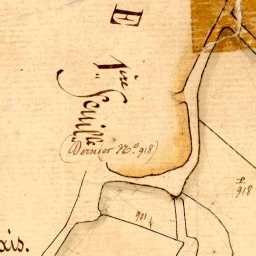 E
1ère
Feuille
(Dernier No. 918)
911
918
ais.